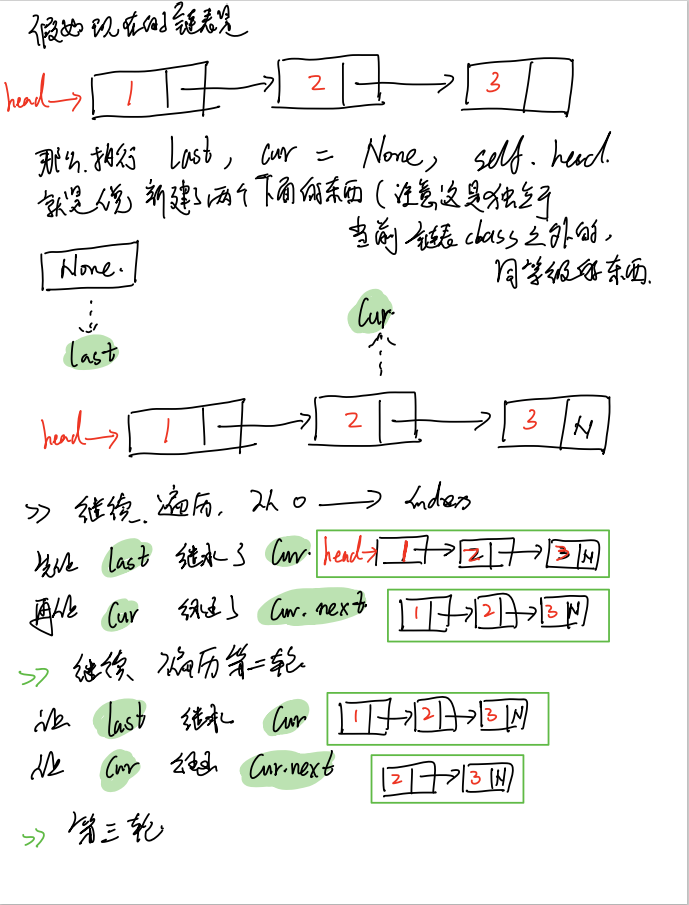 假如现在的链表是
head→ 1 2 3
那么执行 last, cur = None, self.head.
就是说 新建了两个下面的东西 (注意这是独立于
当前链表class之外的,
同等级的东西.
None.
Cur.
last
head→ 1 2 3 N
>> 继续、遍历. 从 0 → index
先让 last 继承了 Cur. head→ 1 2 3 N
再让 Cur 继承了 Cur.next 1 2 3 N
>> 继续、遍历第二轮
让 last 继承 Cur 1 2 3 N
让 Cur 继承 Cur.next 2 3 N
>> 第三轮